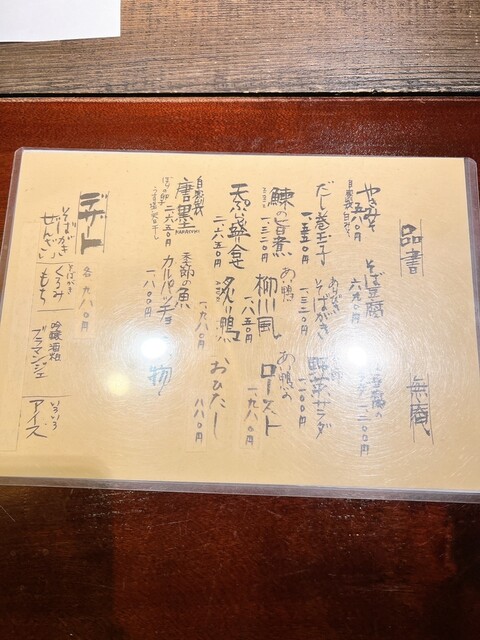 品書
無庵
やきみそ
自家製甘みそ
五八〇円
そば豆腐
六九〇円
豆腐の
だし巻玉子
一、三五〇円
そばがき
一、三二〇円
野菜サラダ
一、一〇〇円
鰊の旨煮
一、三二〇円
あい鴨
柳川風
一、八五〇円
あい鴨の
ロースト
一、九八〇円
天ぷら盛合せ
二、六五〇円
一、九八〇円
おひたし
八八〇円
自家製
唐墨
KARASUMI
二、六五〇円
季節の魚
カルパッチョ
一、一八〇〇円
物
デザート
各 九八〇円
そばがき
ぜんざい
そばがき
くるみ
もち
吟醸酒粕
ブラマンジェ
いろいろ
アイス